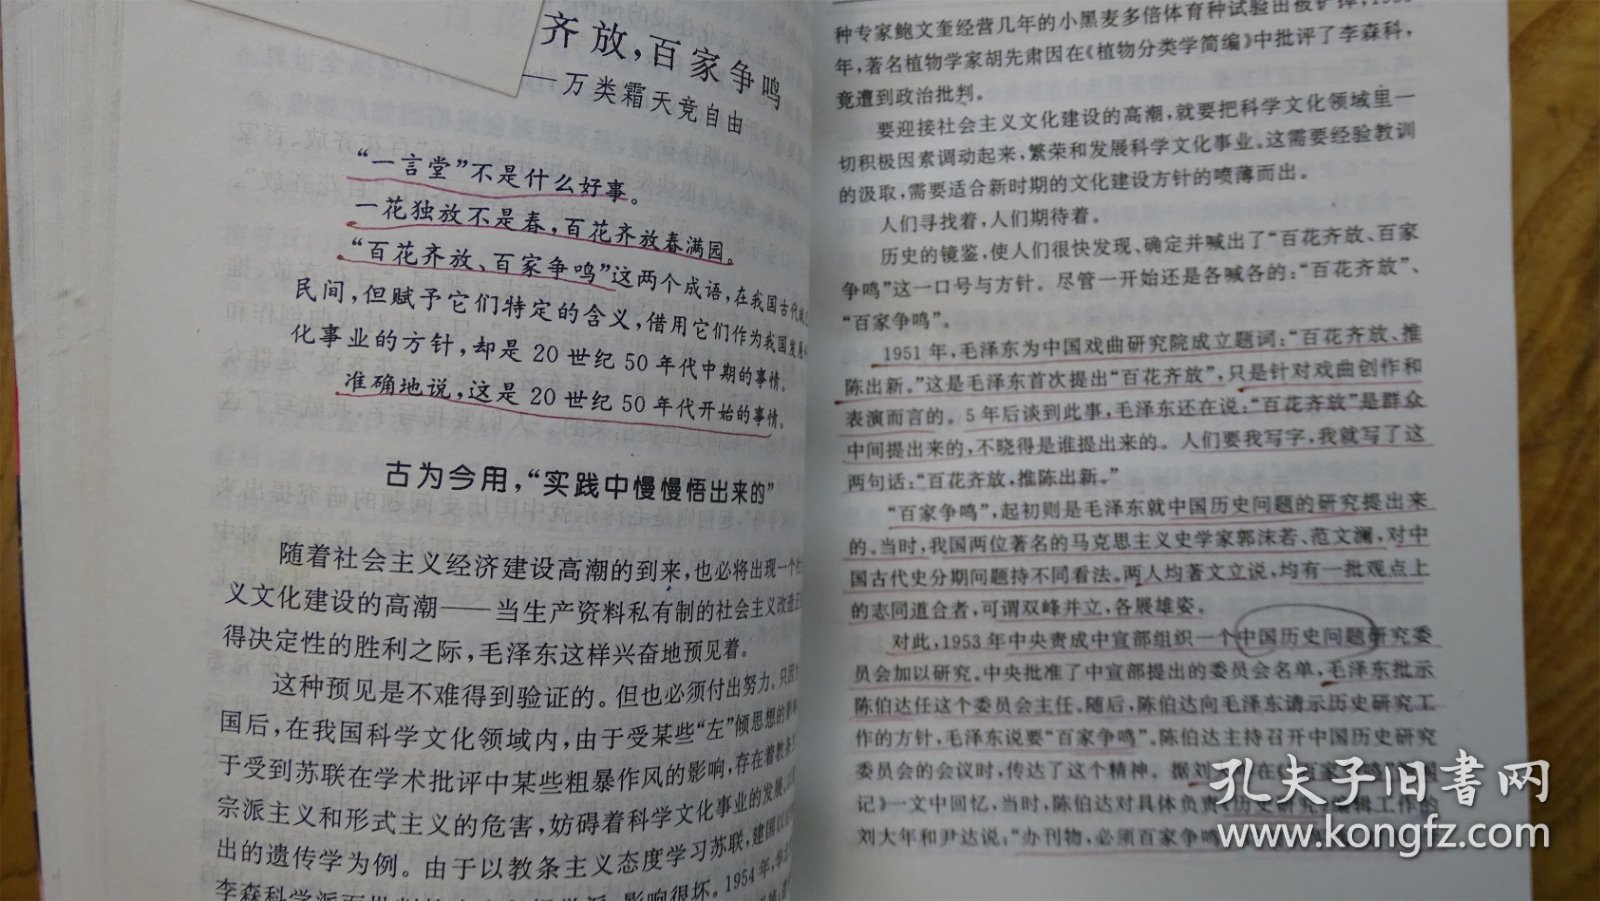 齐放，百家争鸣
——万类霜天竞自由
“一言堂”不是什么好事。
一花独放不是春，百花齐放春满园。
“百花齐放、百家争鸣”这两个成语，在我国古代
民间，但赋予它们特定的含义，借用它们作为我国发
化事业的方针，却是20世纪50年代中期的事情。
准确地说，这是20世纪50年代开始的事情。
古为今用，“实践中慢慢悟出来的”
随着社会主义经济建设高潮的到来，也必将出现一个
义文化建设的高潮——当生产资料私有制的社会主义改造
得决定性的胜利之际，毛泽东这样兴奋地预见着。
这种预见是不难得到验证的。但也必须付出努力。只
国后，在我国科学文化领域内，由于受某些“左”倾思想的影
于受到苏联在学术批评中某些粗暴作风的影响，存在着教条
宗派主义和形式主义的危害，妨碍着科学文化事业的发展。
出的遗传学为例。由于以教条主义态度学习苏联，建国以
李森科学派 影响很坏。1954年，
种专家鲍文奎经营几年的小黑麦多倍体育种试验田被铲掉；
年，著名植物学家胡先肃因在《植物分类学简编》中批评了李森科，
竟遭到政治批判。
要迎接社会主义文化建设的高潮，就要把科学文化领域里一
切积极因素调动起来，繁荣和发展科学文化事业。这需要经验教训
的汲取，需要适合新时期的文化建设方针的喷薄而出。
人们寻找着，人们期待着。
历史的镜鉴，使人们很快发现、确定并喊出了“百花齐放、百家
争鸣”这一口号与方针。尽管一开始还是各喊各的：“百花齐放”、
“百家争鸣”。
1951年，毛泽东为中国戏曲研究院成立题词：“百花齐放、推
陈出新。”这是毛泽东首次提出“百花齐放”，只是针对戏曲创作和
表演而言的。5年后谈到此事，毛泽东还在说：“百花齐放”是群众
中间提出来的，不晓得是谁提出来的。人们要我写字，我就写了这
两句话：“百花齐放，推陈出新。”
“百家争鸣”，起初则是毛泽东就中国历史问题的研究提出来
的。当时，我国两位著名的马克思主义史学家郭沫若、范文澜，对中
国古代史分期问题持不同看法。两人均著文立说，均有一批观点上
的志同道合者，可谓双峰并立，各展雄姿。
对此，1953年中央责成中宣部组织一个中国历史问题研究委
员会加以研究。中央批准了中宣部提出的委员会名单，毛泽东批示
陈伯达任这个委员会主任。随后，陈伯达向毛泽东请示历史研究工
作的方针，毛泽东说要“百家争鸣”。陈伯达主持召开中国历史研究
委员会的会议时，传达了这个精神。据刘
记》一文中回忆，当时，陈伯达对具体负责《历史研究》编辑工作的
刘大年和尹达说：“办刊物，必须百家争鸣
孔夫子旧书网
www.kongfz.com